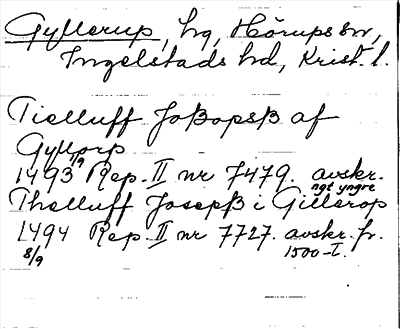 Gyllerup, hg, Hörups sn,
Ingelstads hd, Krist. l.
Tielluff Joßopsß af
Gyllorp
1493 11/9 Rep. II nr 7479. avskr.
ngt yngre
Thelluff Josepß i Gillerop
1494 Rep. II nr 7727. avskr. fr.
8/9 1500-t.